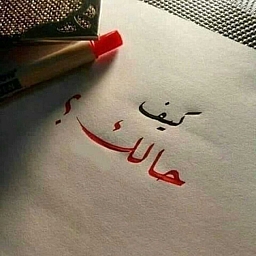 كيف
حالك ؟